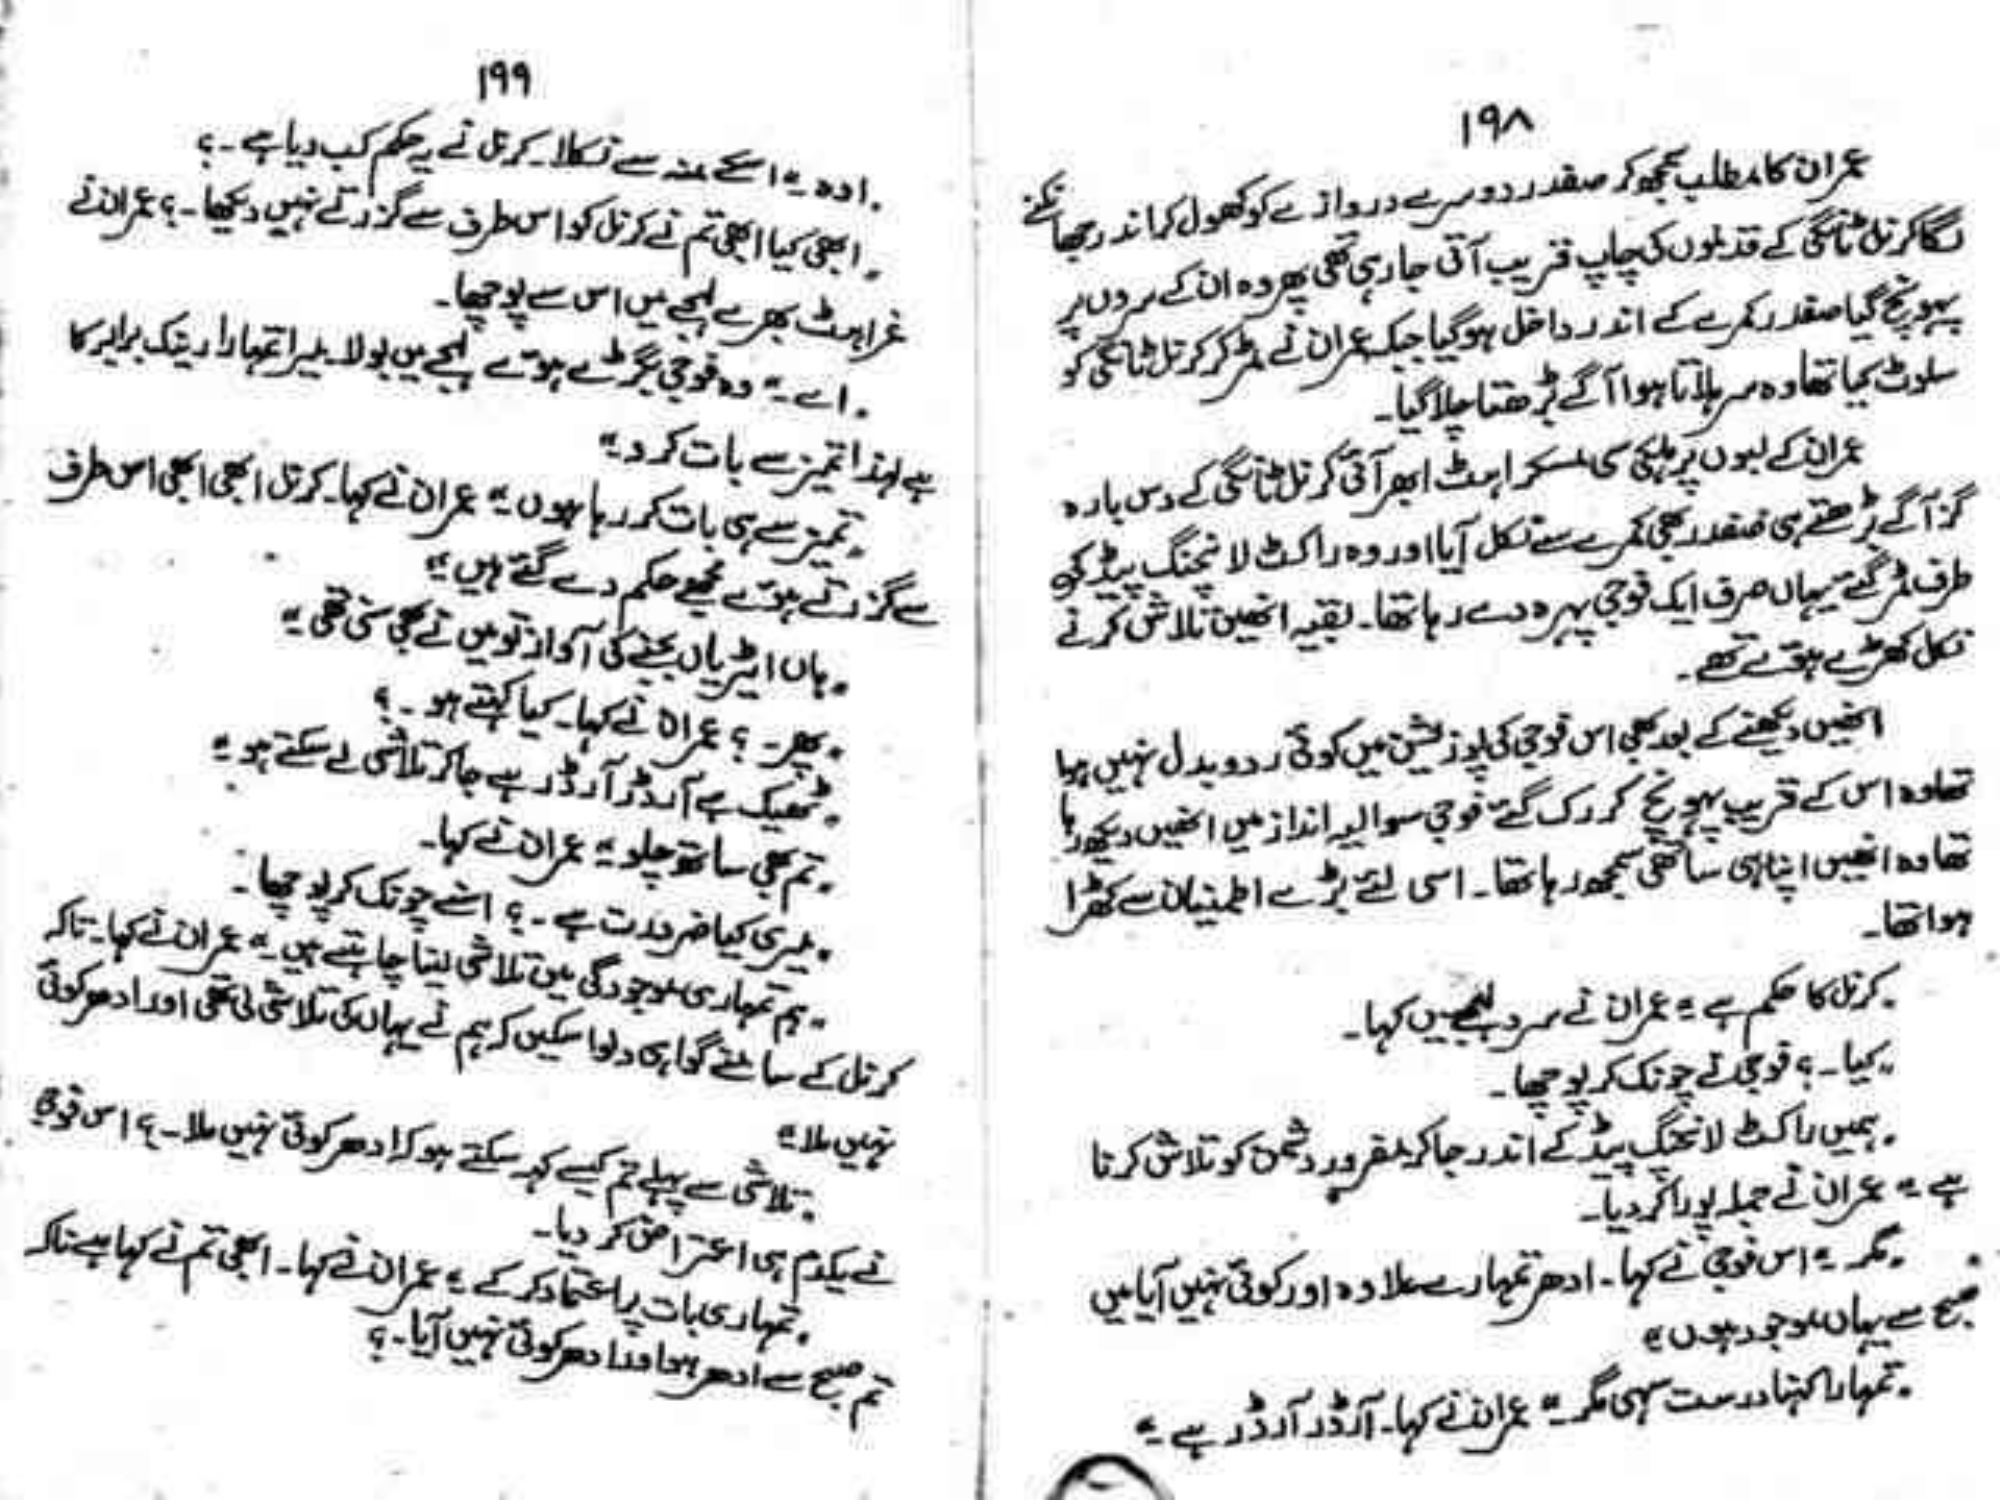 ۱۹۸
عمران کا مطلب سمجھ کر صفدر دوسرے دروازے کو کھول کر اندر جھانکنے
لگا کرنل ٹانگی کے قدموں کی چاپ قریب آتی جا رہی تھی پھر وہ ان کے سروں پر
پہونچ گیا صفدر کمرے کے اندر داخل ہو گیا جبکہ عمران نے مڑ کر کرنل ٹانگی کو
سلوٹ کیا تھا وہ سر ہلاتا ہوا آگے بڑھتا چلا گیا۔
عمران کے لبوں پر ہلکی سی مسکراہٹ ابھر آئی کرنل ٹانگی کے دس بارہ
گز آگے بڑھتے ہی صفدر بھی کمرے سے نکل آیا اور وہ راکٹ لانچنگ پیڈ کی
طرف مڑ گئے یہاں صرف ایک فوجی پہرہ دے رہا تھا۔ بقیہ انھیں تلاش کرنے
نکل کھڑے ہوئے تھے۔
انھیں دیکھنے کے بعد بھی اس فوجی کی پوزیشن میں کوئی ردو بدل نہیں ہوا
تھا وہ اس کے قریب پہونچ کر رک گئے فوجی سوالیہ انداز میں انھیں دیکھ رہا
تھا وہ انھیں اپنا ہی ساتھی سمجھ رہا تھا۔ اسی لئے بڑے اطمینان سے کھڑا
ہوا تھا۔
"کرنل کا حکم ہے" عمران نے سرد لہجے میں کہا۔
"کیا۔؟ فوجی نے چونک کر پوچھا۔
"ہمیں راکٹ لانچنگ پیڈ کے اندر جا کر مفرور دشمن کو تلاش کرنا
ہے" عمران نے جملہ پورا کر دیا۔
"مگر" اس فوجی نے کہا۔ ادھر تمہارے علاوہ اور کوئی نہیں آیا میں
صبح سے یہاں موجود ہوں"
"تمہارا کہنا درست سہی مگر" عمران نے کہا۔ آرڈر آرڈر ہے"
۱۹۹
"اوہ" اسکے منہ سے نکلا۔ کرنل نے یہ حکم کب دیا ہے۔؟
"ابھی کیا ابھی تم نے کرنل کو اس طرف سے گزرتے نہیں دیکھا۔؟ عمران نے
غراہٹ بھرے لہجے میں اس سے پوچھا۔
"اے" وہ فوجی بگڑے ہوئے لہجے میں بولا میرا تمہارا رینک برابر کا
ہے لہذا تمیز سے بات کرو"
"تمیز سے ہی بات کر رہا ہوں" عمران نے کہا۔ کرنل ابھی ابھی اس طرف
سے گزرتے ہوئے مجھے حکم دے گئے ہیں"
"ہاں ایڑیاں بجنے کی آواز تو میں نے بھی سنی تھی"
"پھر۔؟ عمران نے کہا۔ کیا کہتے ہو۔؟
"ٹھیک ہے آرڈر آرڈر ہے جا کر تلاشی لے سکتے ہو"
"تم بھی ساتھ چلو" عمران نے کہا۔
"میری کیا ضرورت ہے۔؟ اسنے چونک کر پوچھا۔
"ہم تمہاری موجودگی میں تلاشی لینا چاہتے ہیں" عمران نے کہا۔ تاکہ
کرنل کے سامنے گواہی دلوا سکیں کہ ہم نے یہاں کی تلاشی لی تھی اور ادھر کوئی
نہیں ملا"
"تلاشی سے پہلے تم کیسے کہہ سکتے ہو کہ ادھر کوئی نہیں ملا۔؟ اس فوجی
نے یکدم ہی اعتراض کر دیا۔
"تمہاری بات پر اعتماد کر کے" عمران نے کہا۔ ابھی تم نے کہا ہے ناکہ
تم صبح سے ادھر ہو اور ادھر کوئی نہیں آیا۔؟